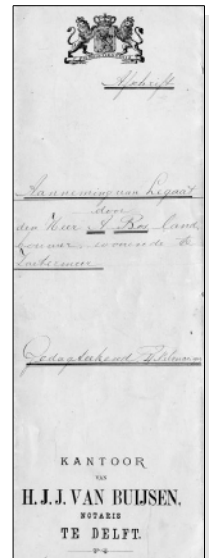 Afschrift
Aanneming van Legaat
door
den Heer A. Bos land,
bouwer, wonende te
Zoetermeer
Gedagteekend
KANTOOR
VAN
H.J.J. VAN BUIJSEN.
NOTARIS
TE DELFT.